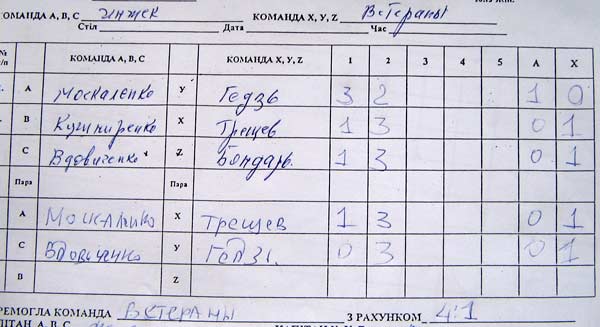 КОМАНДА А, В, С Инжек КОМАНДА Х, У, Z Ветераны
Стіл Дата Час
№ п/п КОМАНДА А, В, С КОМАНДА Х, У, Z 1 2 3 4 5 А Х
А Москаленко У Гедзь 3 2 1 0
В Кушниренко Х Трещев 1 3 0 1
С Вдовиченко Z Бондарь. 1 3 0 1
Пара Пара
А Москаленко Х Трещев 1 3 0 1
С Вдовиченко У Гедзь 0 3 0 1
В Z
РЕМОГЛА КОМАНДА Ветераны З РАХУНКОМ 4:1
ПІТАН А, В, С